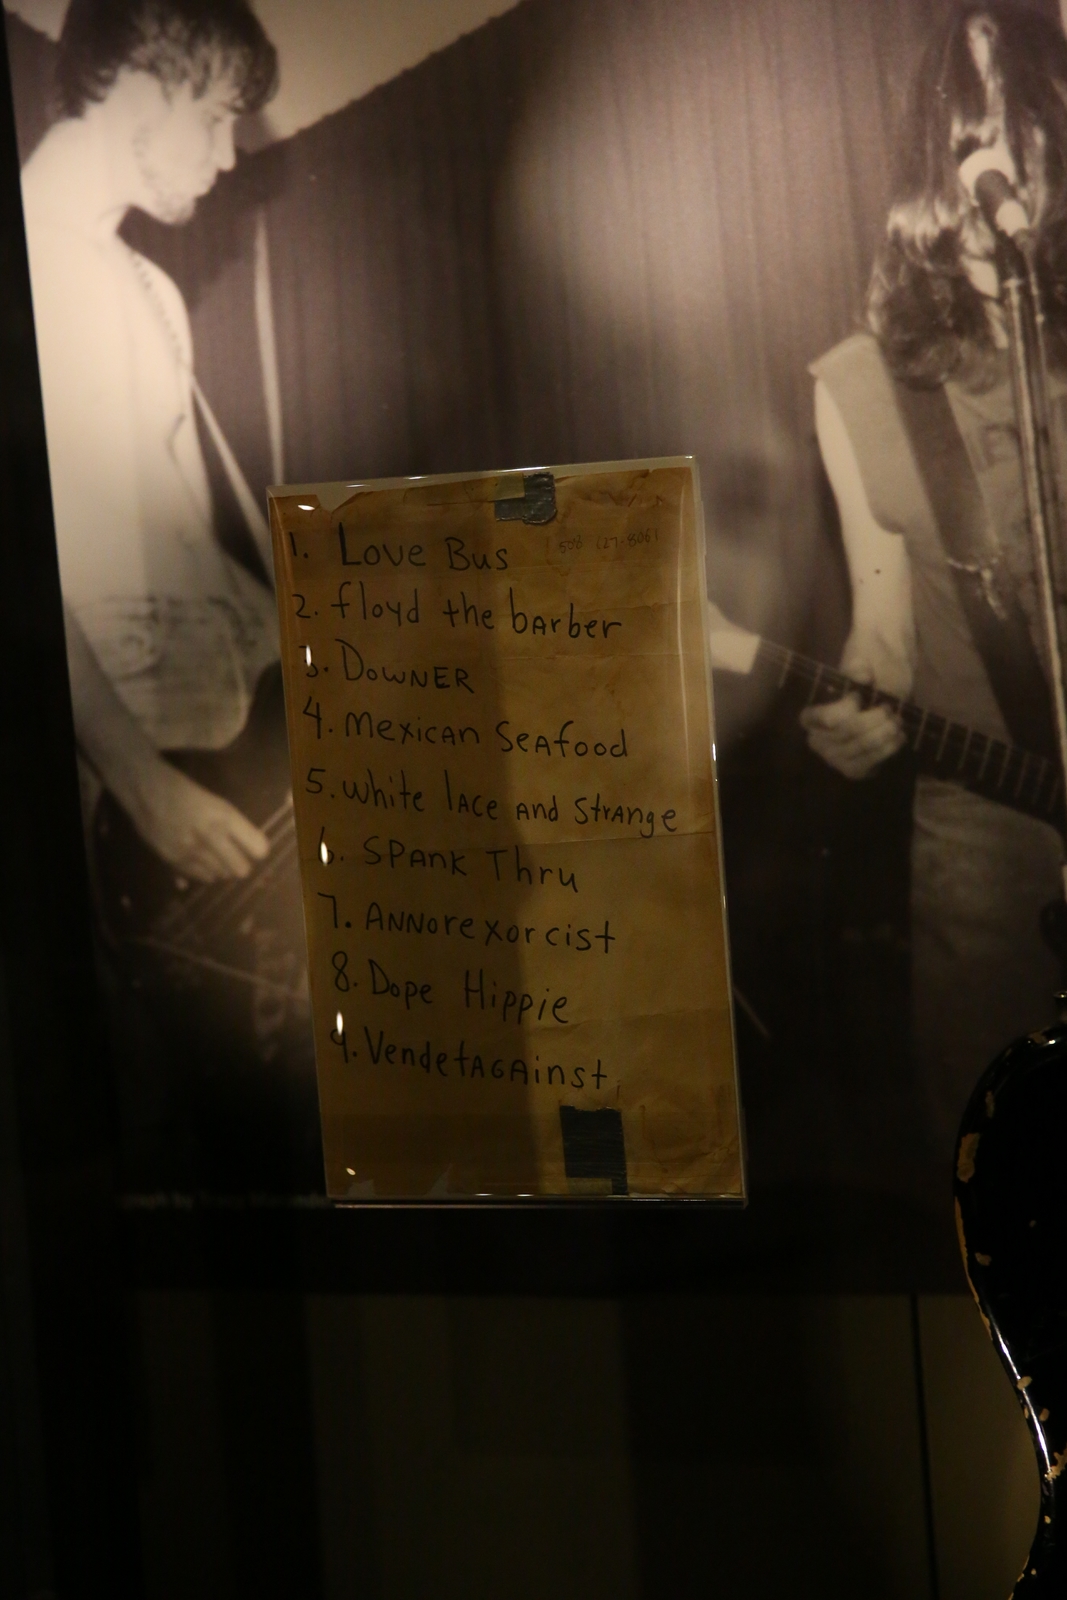 1. Love Bus
2. floyd the barber
3. DOWNER
4. Mexican Seafood
5. white lace and Strange
6. Spank Thru
7. Annorexorcist
8. Dope Hippie
9. Vendetagainst